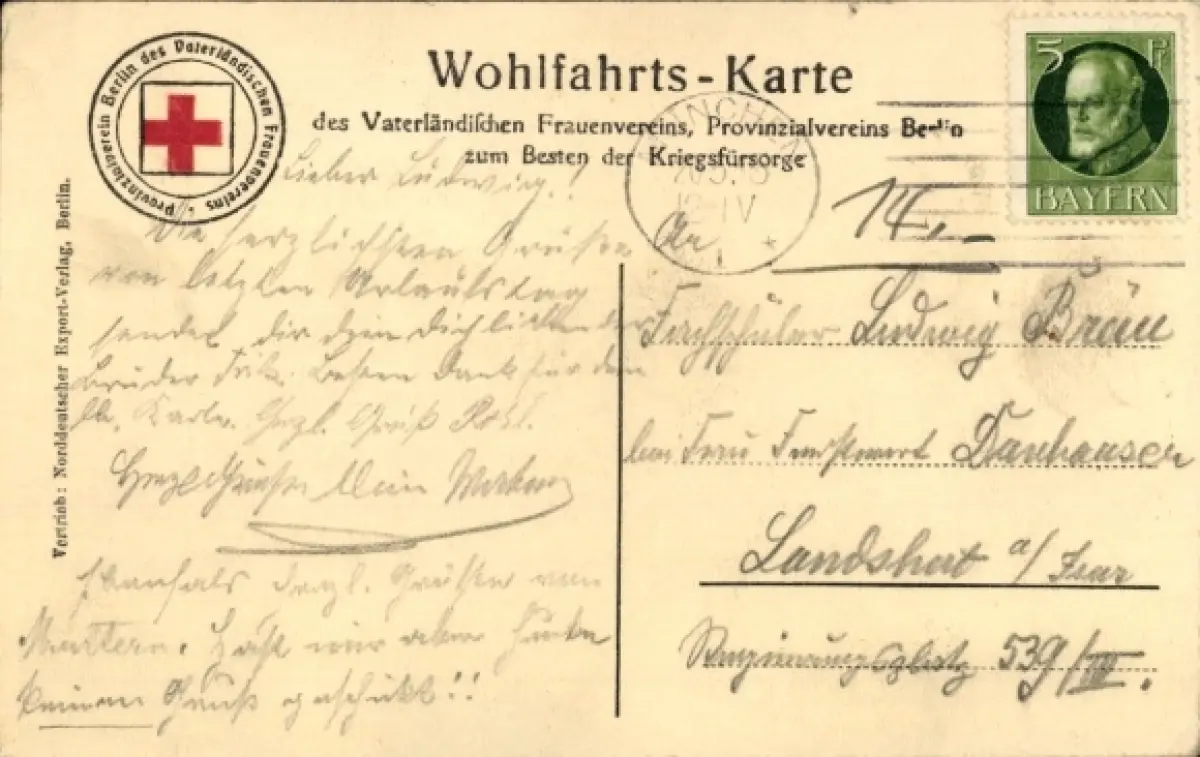 Provinzialverein Berlin des Vaterländischen Frauenvereins
Wohlfahrts-Karte
des Vaterländischen Frauenvereins, Provinzialvereins Berlin
zum Besten der Kriegsfürsorge
5 Pf
BAYERN
14,-
Vertrieb: Norddeutscher Export-Verlag, Berlin.
Lieber Ludwig!
Die herzlichsten Grüße
vom letzten Urlaubstag
sendet dir dein dich liebender
Bruder Besten Dank für den
lb. Karte. Herzl. Gruß
Herzl. Grüße
Ebenfalls herzl. Grüße von
Muttern. Hast mir aber heute
keinen Gruß geschickt!!
An
Ludwig Bräu
bei Frau Danhauser
Landshut a/ Isar
539/III.